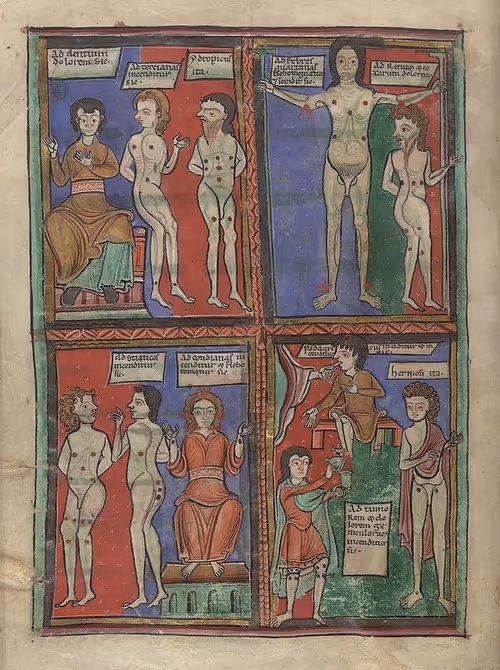 Ad dentium
dolorem sic.
Ad tercianas
incenditur
sic
ydropicus
ita.
Ad febres
quartanas
flebothomatur
incendit sic.
Ad Renum
dolorem
sic.
Ad sciaticos
incenditur
sic.
Ad cotidianas in
cenditur flebo
tomatur sic
Podagricus
inciditur
sic.
herniosi ita.
Ad tumo
Rem & do
lorem ge
niculorum
incenditur
sic.